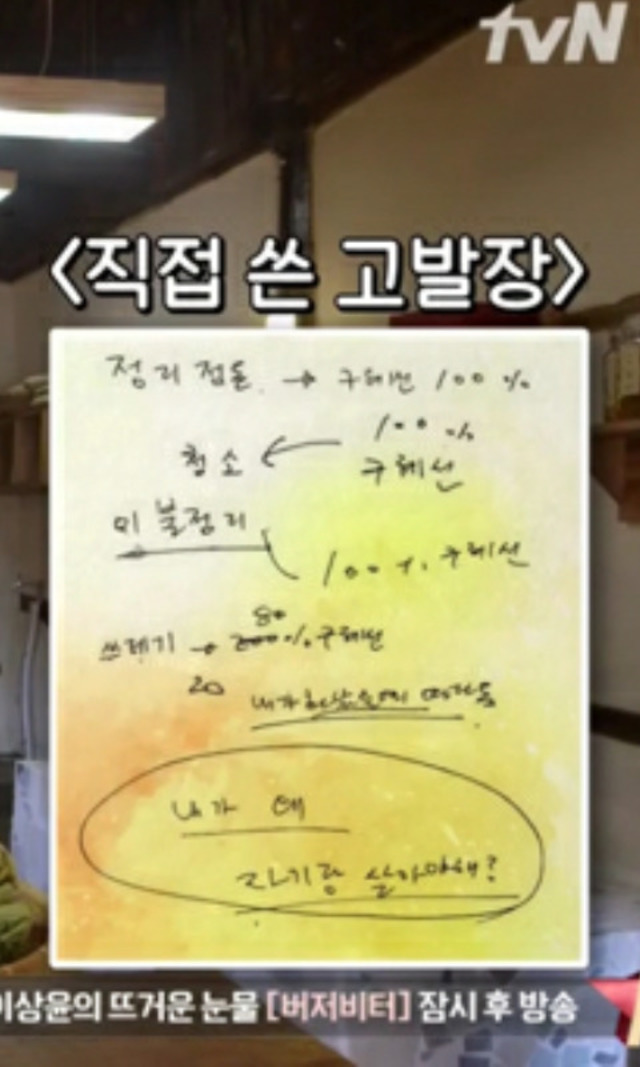 tvN
<직접 쓴 고발장>
정리정돈 → 구혜선 100 %
100 %
청소 ← 구혜선
이불정리
100 %. 구혜선
80
쓰레기 → 200% 구혜선
20
내가
내가 왜
자기랑 살아야해?
이상윤의 뜨거운 눈물 [버저비터] 잠시 후 방송